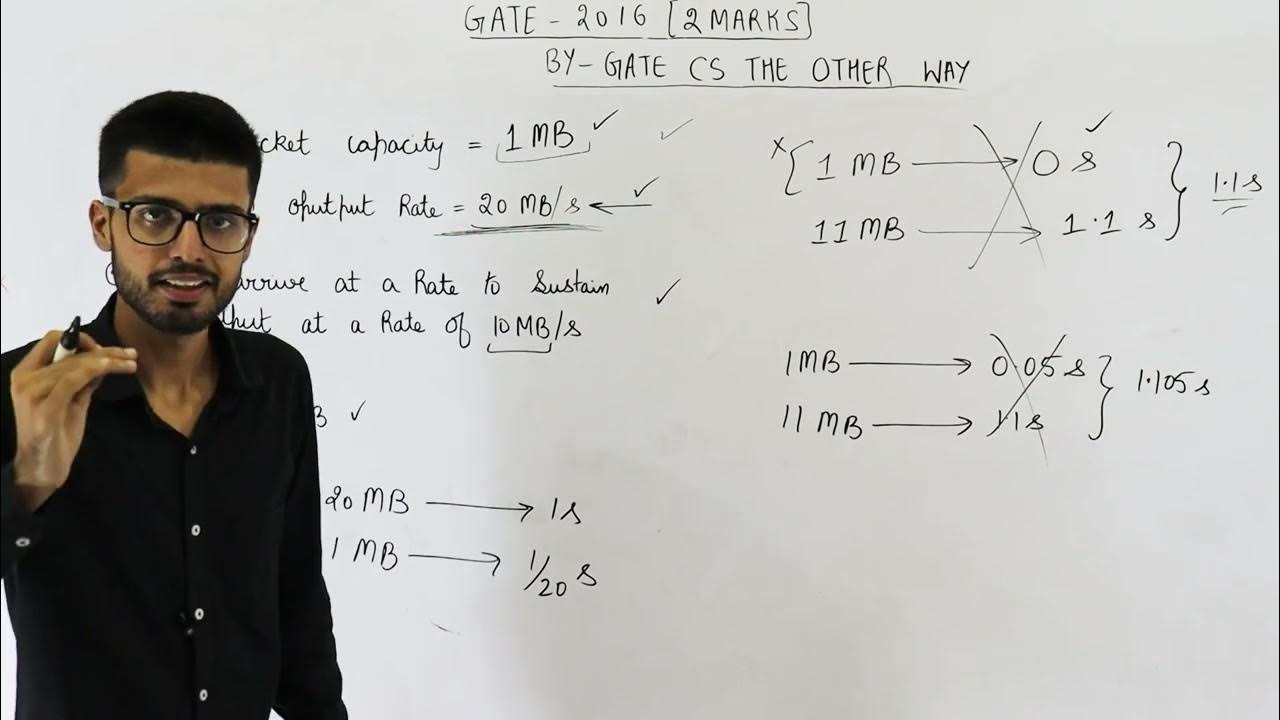 GATE - 2016 [2 MARKS]
BY - GATE CS THE OTHER WAY
capacity = 1 MB ✓ ✓
oputput Rate = 20 MB/s ← ✓
at a Rate to Sustain ✓
at a Rate of 10MB/s
✓
20 MB → 1s
1 MB → 1/20 s
x [ 1 MB → 0 s ✓
11 MB → 1.1 s } 1.1s
1MB → 0.05 s
11 MB → 1.1s } 1.105 s